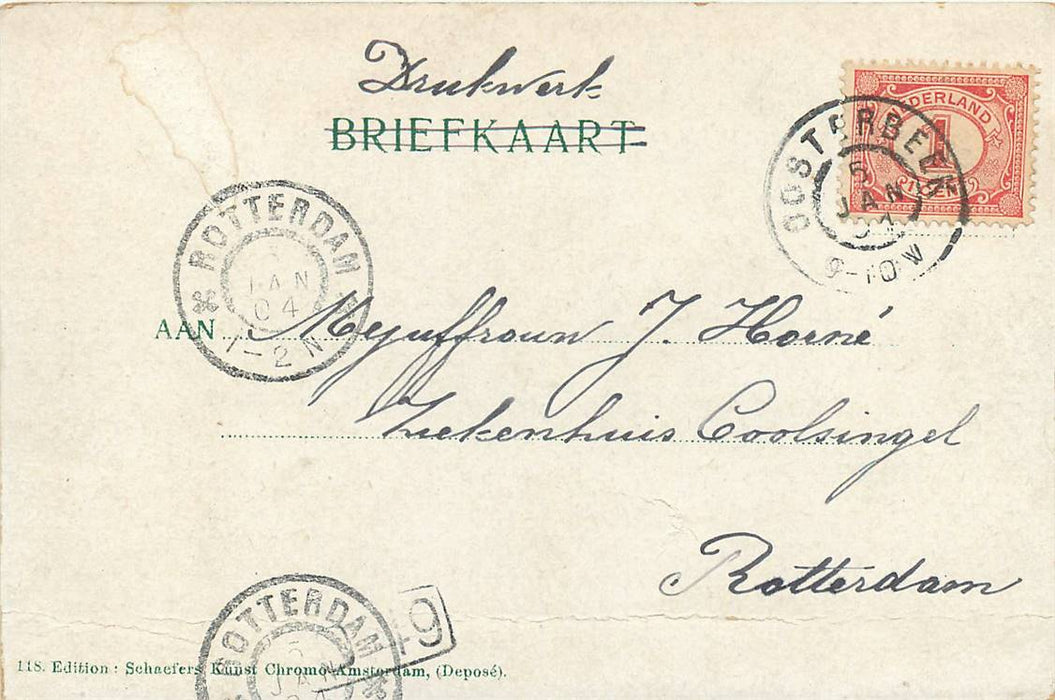 Drukwerk
BRIEFKAART
NEDERLAND
1
CENT
OOSTERBEEK
5
JAN
9-10 V
ROTTERDAM
JAN
04
1-2 N
AAN Mejuffrouw J. Horné
Ziekenhuis Coolsingel
Rotterdam
ROTTERDAM
5
JAN
04
19
118. Edition: Schaefers Kunst Chromo Amsterdam, (Deposé).